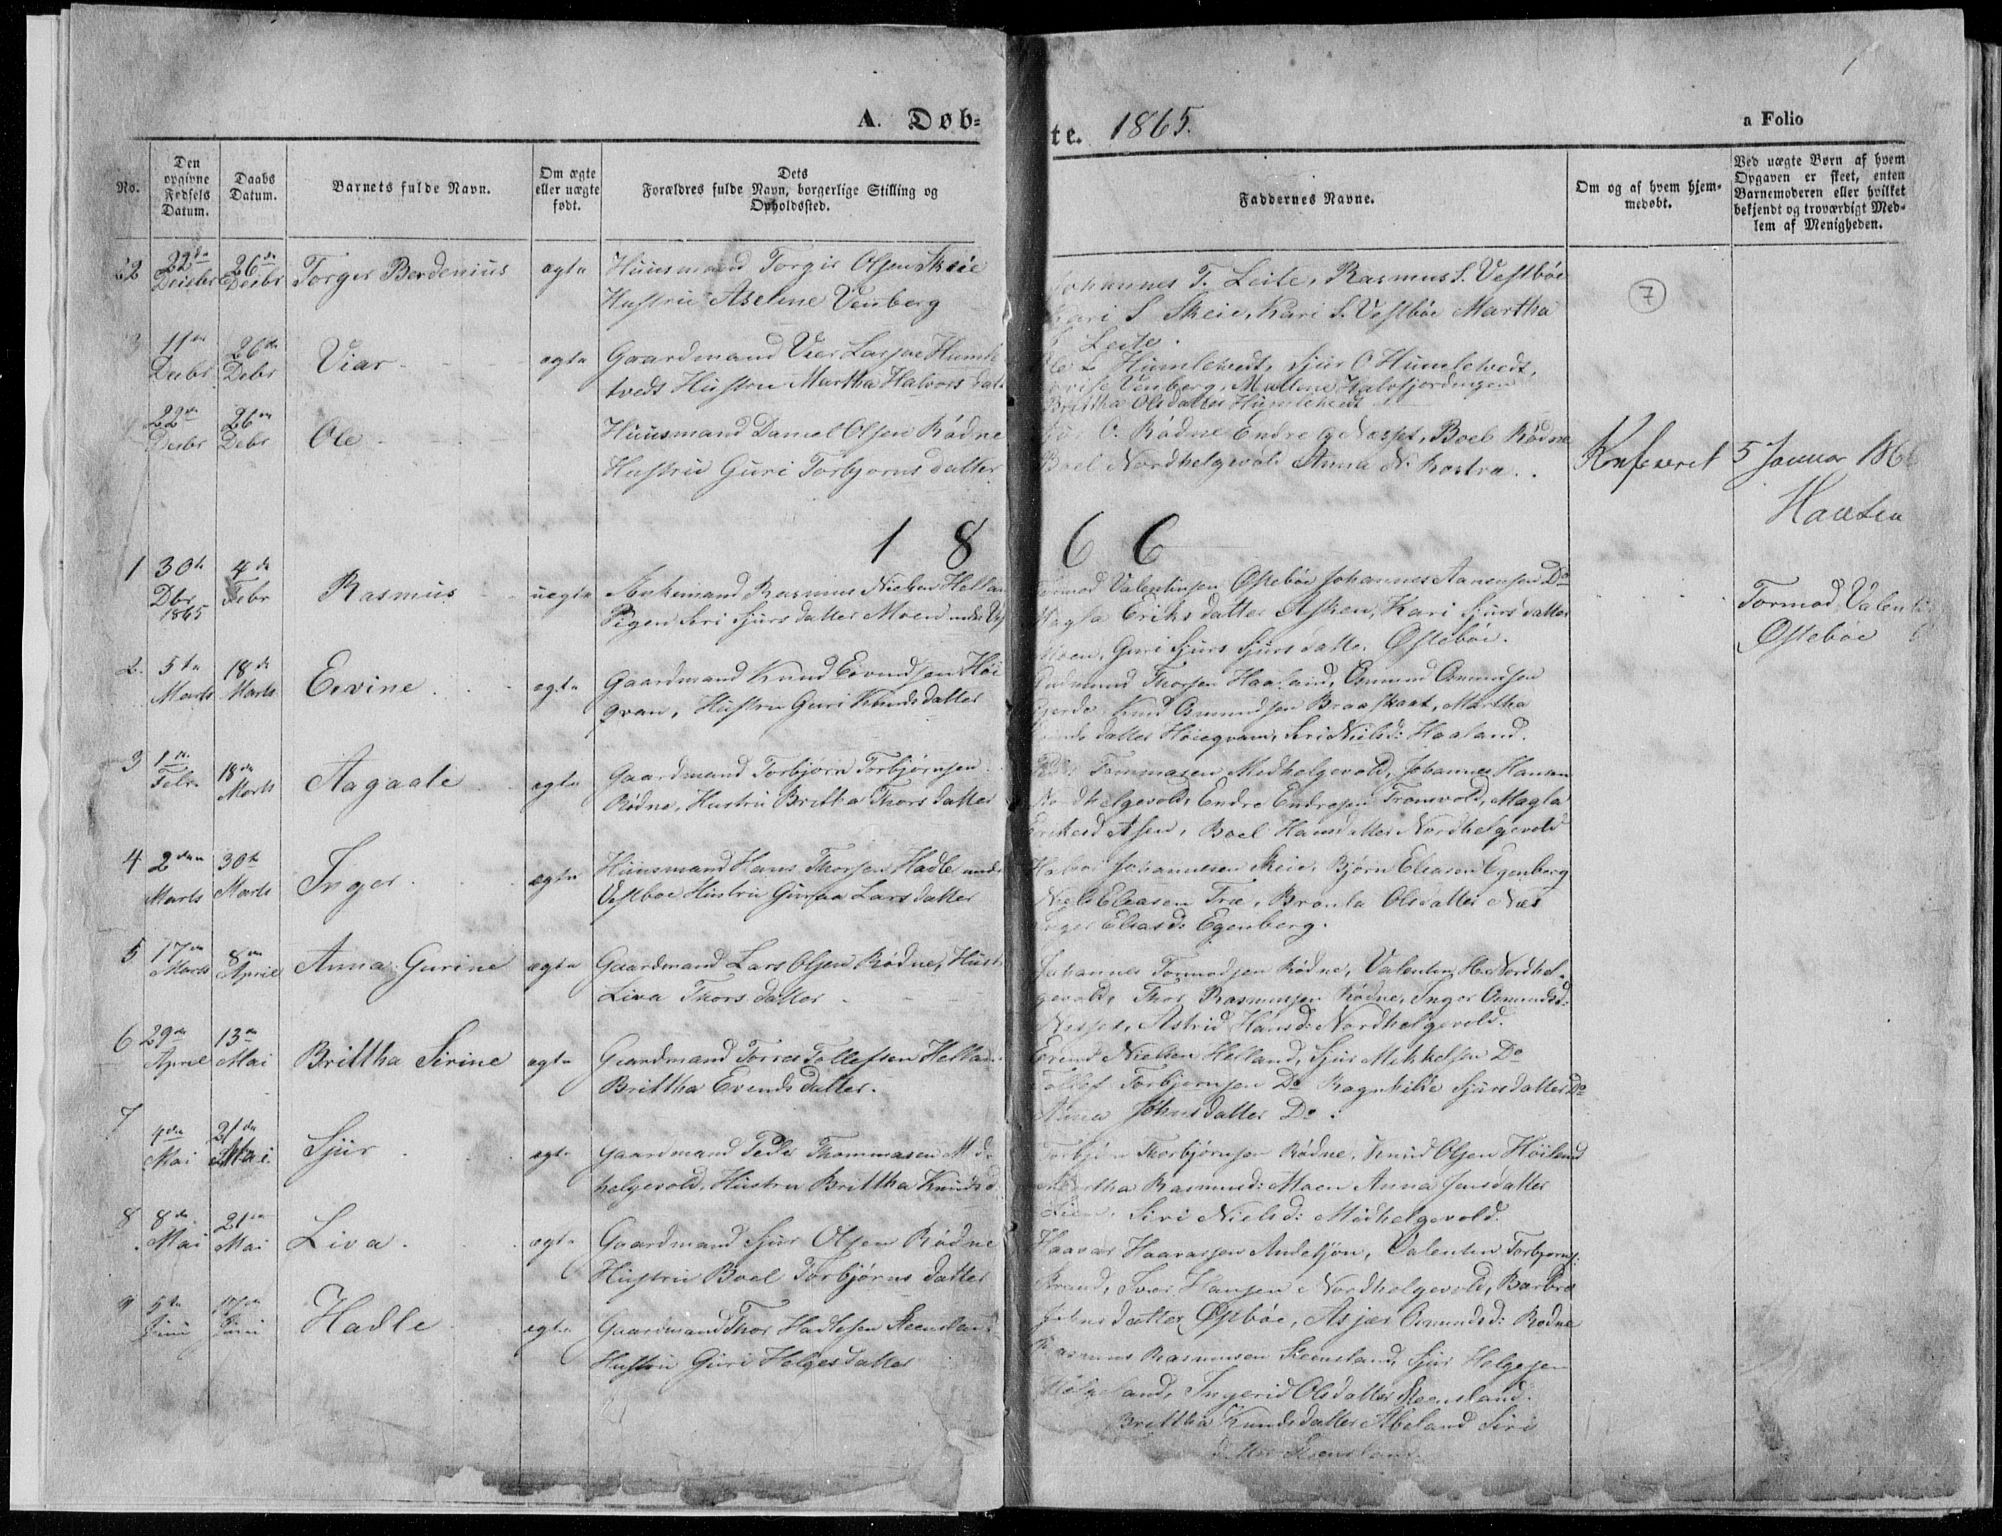 A. Døb=
te. 1865.
a Folio
No.
Den opgivne Fødsels Datum.
Daabs Datum.
Barnets fulde Navn.
Om ægte eller uægte født.
Dets Forældres fulde Navn, borgerlige Stilling og Opholdssted.
Faddernes Navne.
Om og af hvem hjem=
medøbt.
Ved uægte Børn af hvem
Opgaven er skeet, enten
Barnemoderen eller hvilket
bekjendt og troværdigt Med=
lem af Menigheden.
22 22de Decbr 26de Decbr Torger Berdenius ægte Huusmand Torgir Olsen Skeie
Hustru Aselene Venberg
Johannes T. Leite, Rasmus S. Vestbøe
Kari S Skeie, Kari S. Vestbøe Martha
Leite.
11te Decbr 26de Debr Viar ægte Gaardmand Vier Larsen Humle
tvedt Hustru Martha Halvorsdatt
Ole L Humletvedt, Sjur O Humletvedt,
Venberg, Mallene Halvfjordingen
Brittha Olsdatter Humletvedt
22de Decbr 26de Debr Ole Huusmand Daniel Olsen Rødne
Hustru Guri Torbjørnsdatter
O. Rødne Endre Nesset, Boel Rødne
Boel Nordhelgevold Anna N. Rostra.
Konfereret 5 Januar 186
Hansen
1 8 6 6
1 30te Dbr 1865 4de Febr Rasmus uægte Rasmus Nielsen Hellan
Pigen Siri Sjursdatter Moen under
Tormod Valentinsen Østebøe Johannes Aanensen Do
Magla Eriksdatter Asken, Kari Sjursdatter
Moen, Guri Sjurs Sjursdatte. Østebøe.
Tormod Valen
Østebøe
2 5te Marts 18de Marts Eivine ægte Gaardmand Knud Eivindsen Høi
qvam, Hustru Guri Knudsdatter
Gudmund Thorsen Haaland, Omund Omundsen
Gjerde Knud Omundsen Braaskaat, Martha
datter Høieqvam, Siri Nielsd: Haaland.
3 1te Febr 18de Marts Aagaate ægte Gaardmand Torbjørn Torbjørnsen
Rødne, Hustru Brittha Thorsdatter
Tommasen Medhelgevold, Johannes Hansen
Nordhelgevold, Endre Endresen Tromsvold, Magla
Asen, Boel Hansdatter Nordhelgevold
4 2den Marts 30te Marts Inger ægte Huusmand Hans Thorsen Hadle under
Vestboe Hustru Larsdatter
Johannesen Skeie, Bjørn Eliasen Egenberg
Niels Eleasen Træ, Olsdatter Næs
Inger Eliasd: Egenberg.
5 17de Marts 8de Aprile Anna Gurine ægte Gaardmand Lars Olsen Rødne, Hustr
Liva Thorsdatter
Johannes Tormodsen Rødne, Valentin H. Nordhel=
gevold, Thor Rasmussen Rødne, Inger Omundsd:
Nesset, Astrid Hansd: Nordhelgevold.
6 29de Aprel 13de Mai Brittha Sirine ægte Gaardmand Torres Tollefsen Hellan
Brittha Evendsdatter.
Evend Nielsen Helland, Sjur Mikkelsen Do
Tollef Torbjørnsen Do Ragnhilde Sjursdatter Do
Anna Johnsdatter Do.
7 4de Mai 21de Mai Sjur ægte Gaardmand Peder Thommasen Med
helgevold, Hustru Brittha Knudsd
Torbjørn Thorbjørnsen Rødne, Knud Olsen Høiland
Martha Rasmusd: Moen Anna Jensdatter
Lien, Siri Nielsd: Midhelgevold.
8 8de Mai 21de Mai Liva ægte Gaardmand Sjur Olsen Rødne
Hustru Boel Torbjørnsdatter
Haavar Haavarsen Andesjøn, Valentin Torbjørns:
Strand, Ivar Hansen Nordhelgevold, Barbro
Johnsdatter Østbøe, Asjær Omundsd: Rødne
9 5te Juni 17de Juni Hadle ægte Gaardmand Thor Hadlesen Steensland
Hustru Guri Helgesdatter
Rasmus Rasmussen Steensland, Sjur Helgesen
Helgeland, Ingerid Olsdatter Steensland.
Brittha Knudsdatter Abeland Siri
datter Steensland.
7